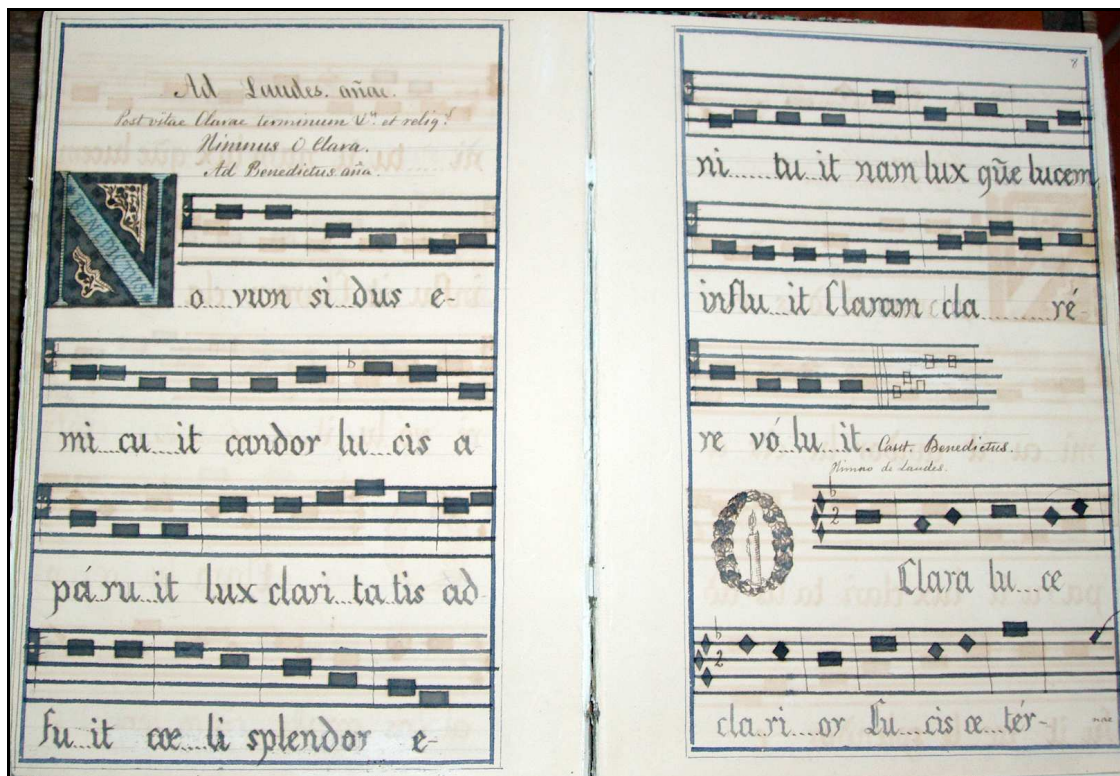 Ad Laudes. añae.
Post vitae Clarae terminum V.ª et relig.ˢ
Himnus O Clara.
Ad Benedictus aña.
BENEDICTUS
o vum si dus e-
mi cu it candor lu cis a
pá ru it lux clari ta tis ad
fu it cœ li splendor e-
8
ni tu it nam lux qũe lucem
influ it Claram cla ré
re vó lu it Cant. Benedictus.
Himno de Laudes.
O Clara lu ce
cla ri or Lu cis æ tér-